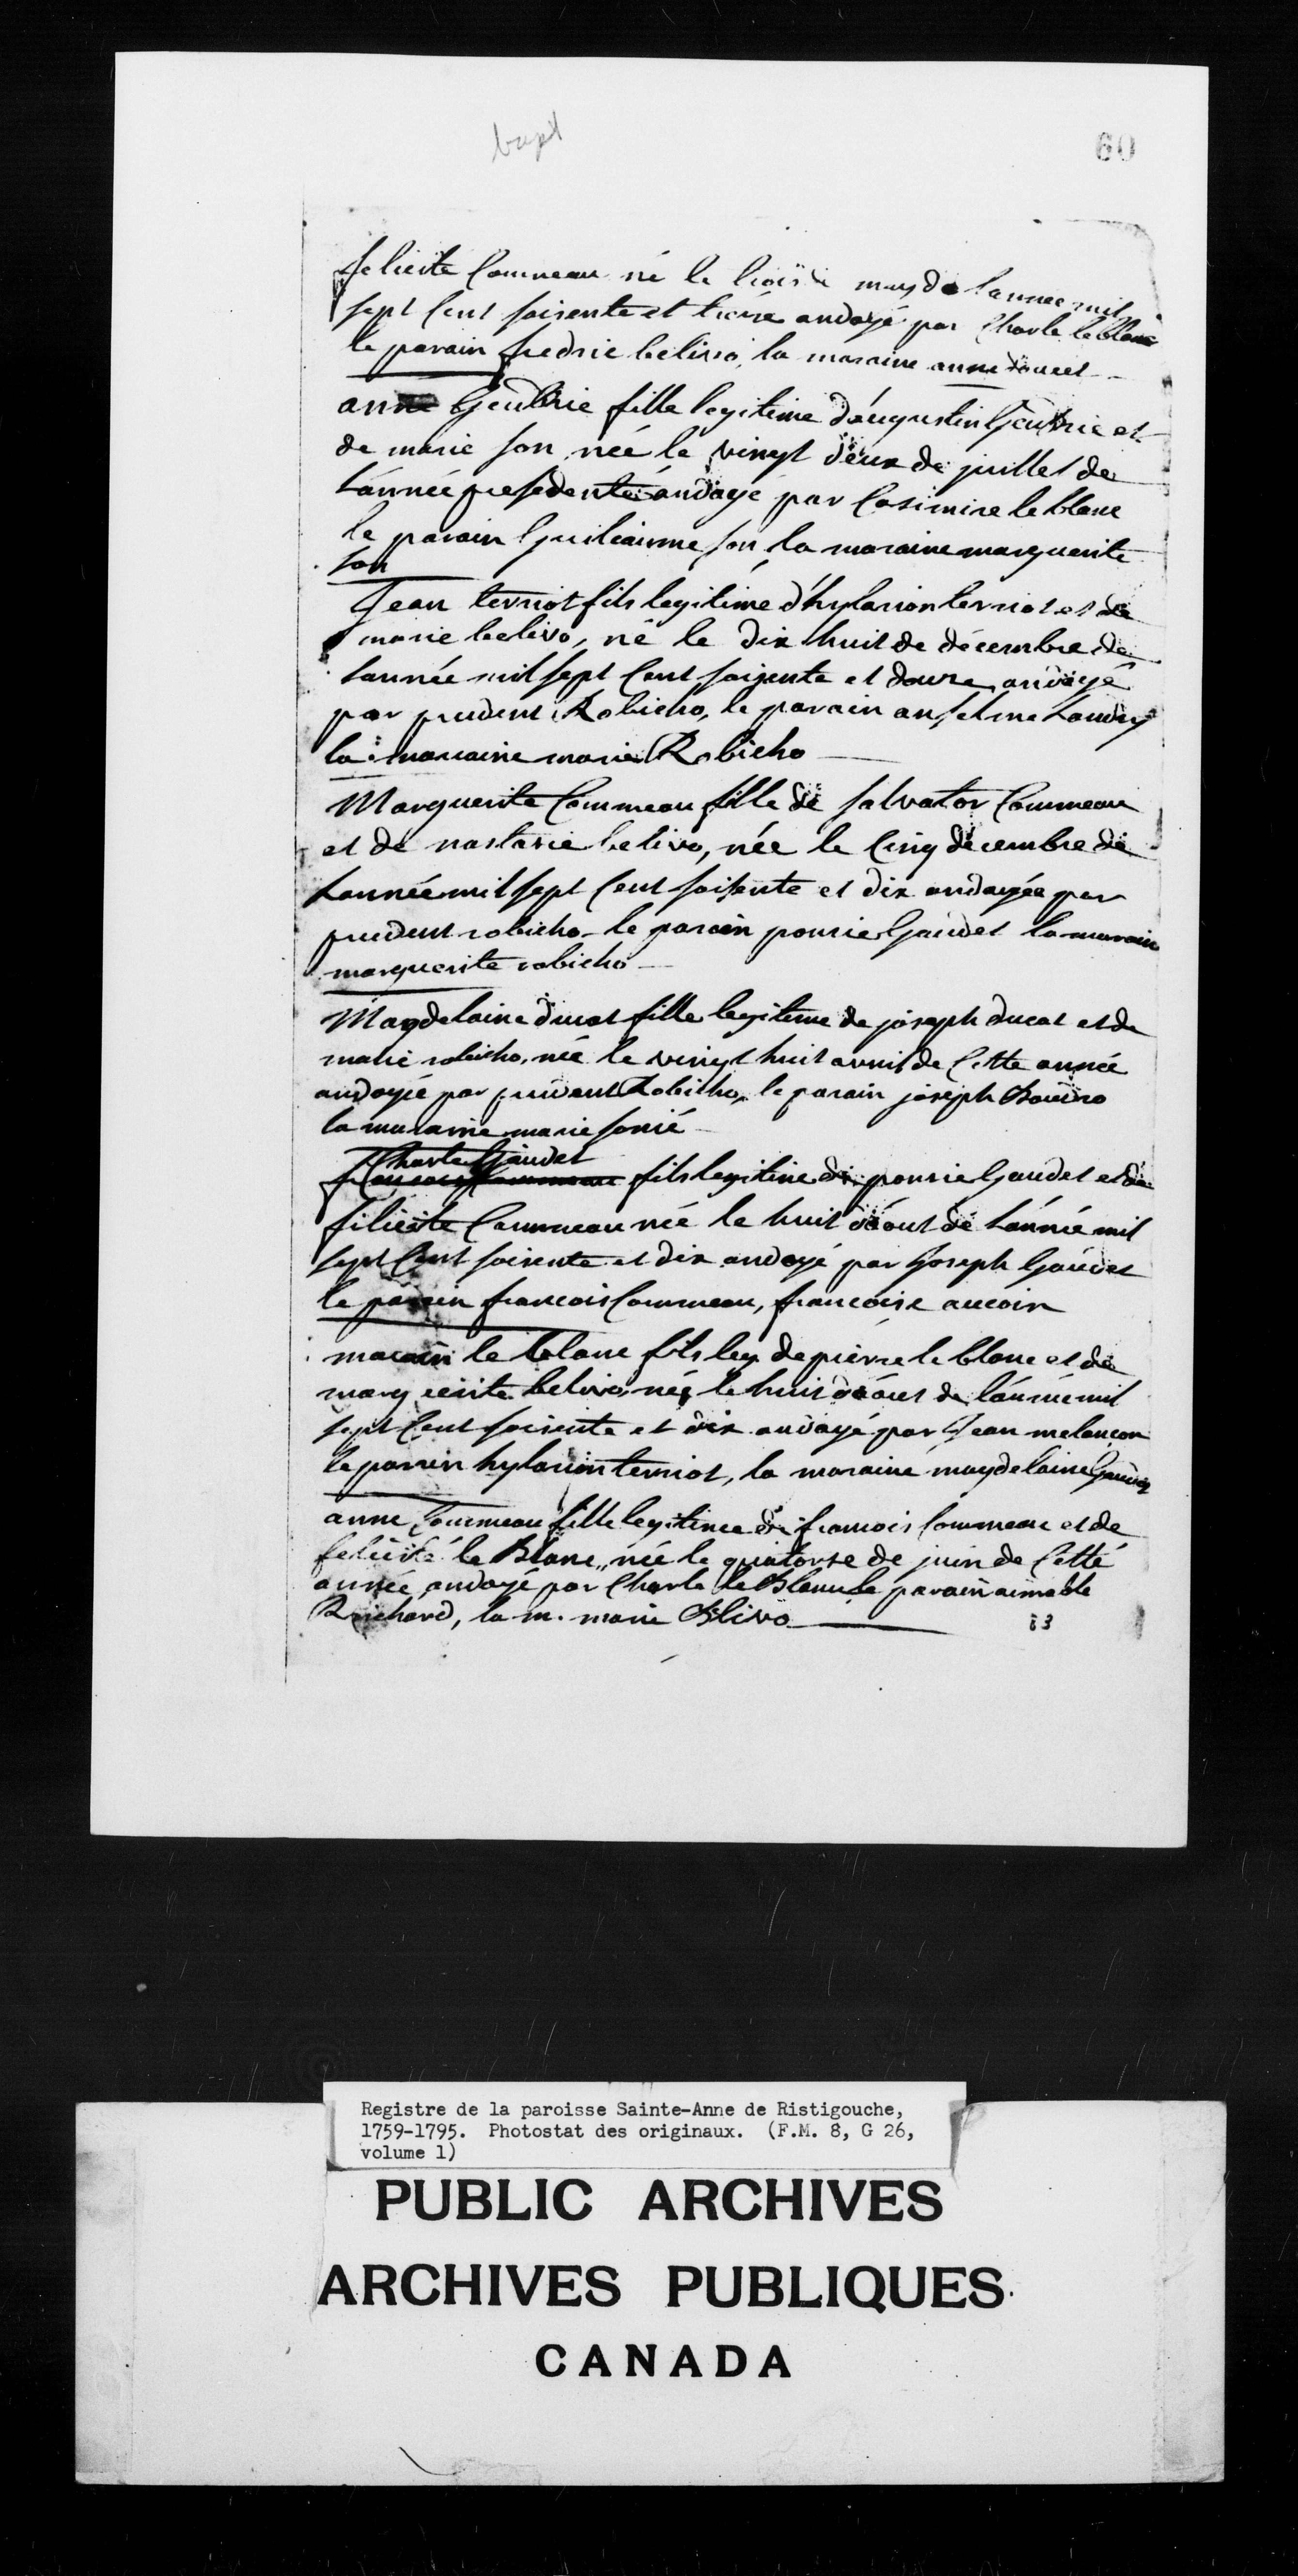 bapt
60
felicite Commeau né le trois de may de lannee mil
sept Cent soisente et treise andoyé par Charle le blanc
le parain fredric belivo, la maraine anne doucet
anne Geudrie fille legitime d'augustin Geudrie et
de marie son, née le vingt deux de juillet de
L'année presedente andoyé par Casimire le blanc
le parain Guiliaume son, la maraine marguerite
son
Jean terriot fils legitime d'hylarion terriot et de
marie belivo, né le dix huit de décembre de
lannée mil sept Cent soizente et douze, andoyé
par prudent Robicho, le parain anselme Landry
la maraine marie Robicho
Marguerite Commeau fille de salvator Commeau
et de nastasie belivo, née le Cinq décembre de
Lannée mil sept Cent soisente et dix andoyée par
prudent robicho le parain pourie Gaudet la marain
marguerite robicho
Magdelaine ducat fille legiteme de joseph ducat et de
marie robicho, née le vingt huit avril de Cette année
andoyée par prudent Robicho, le parain joseph
la maraine marie
Charle Gaudet
fils legitime de pourie Gaudet et de
filicite Commeau née le huit d'aout de L'année mil
sept Cent soisente et dix andoyé par Joseph Gaudet
le parain francois Commeau, francoise aucoin
le blanc fils leg de pierre le blanc et de
marguerite belivo, né le huit d'aout de l'année mil
sept Cent soisente et dix andoyé par Jean melancon
le parrin hylarion terriot, la maraine magdelaine Gaudet
anne Commeau fille legitime de francois Commeau et de
felicité le Blanc, née le quatorse de juin de Cette
année andoyé par Charle le Blanc le parain aimable
Richard, la m. marie Blivo
83
Registre de la paroisse Sainte-Anne de Ristigouche,
1759-1795. Photostat des originaux. (F.M. 8, G 26,
volume 1)
PUBLIC ARCHIVES
ARCHIVES PUBLIQUES
CANADA